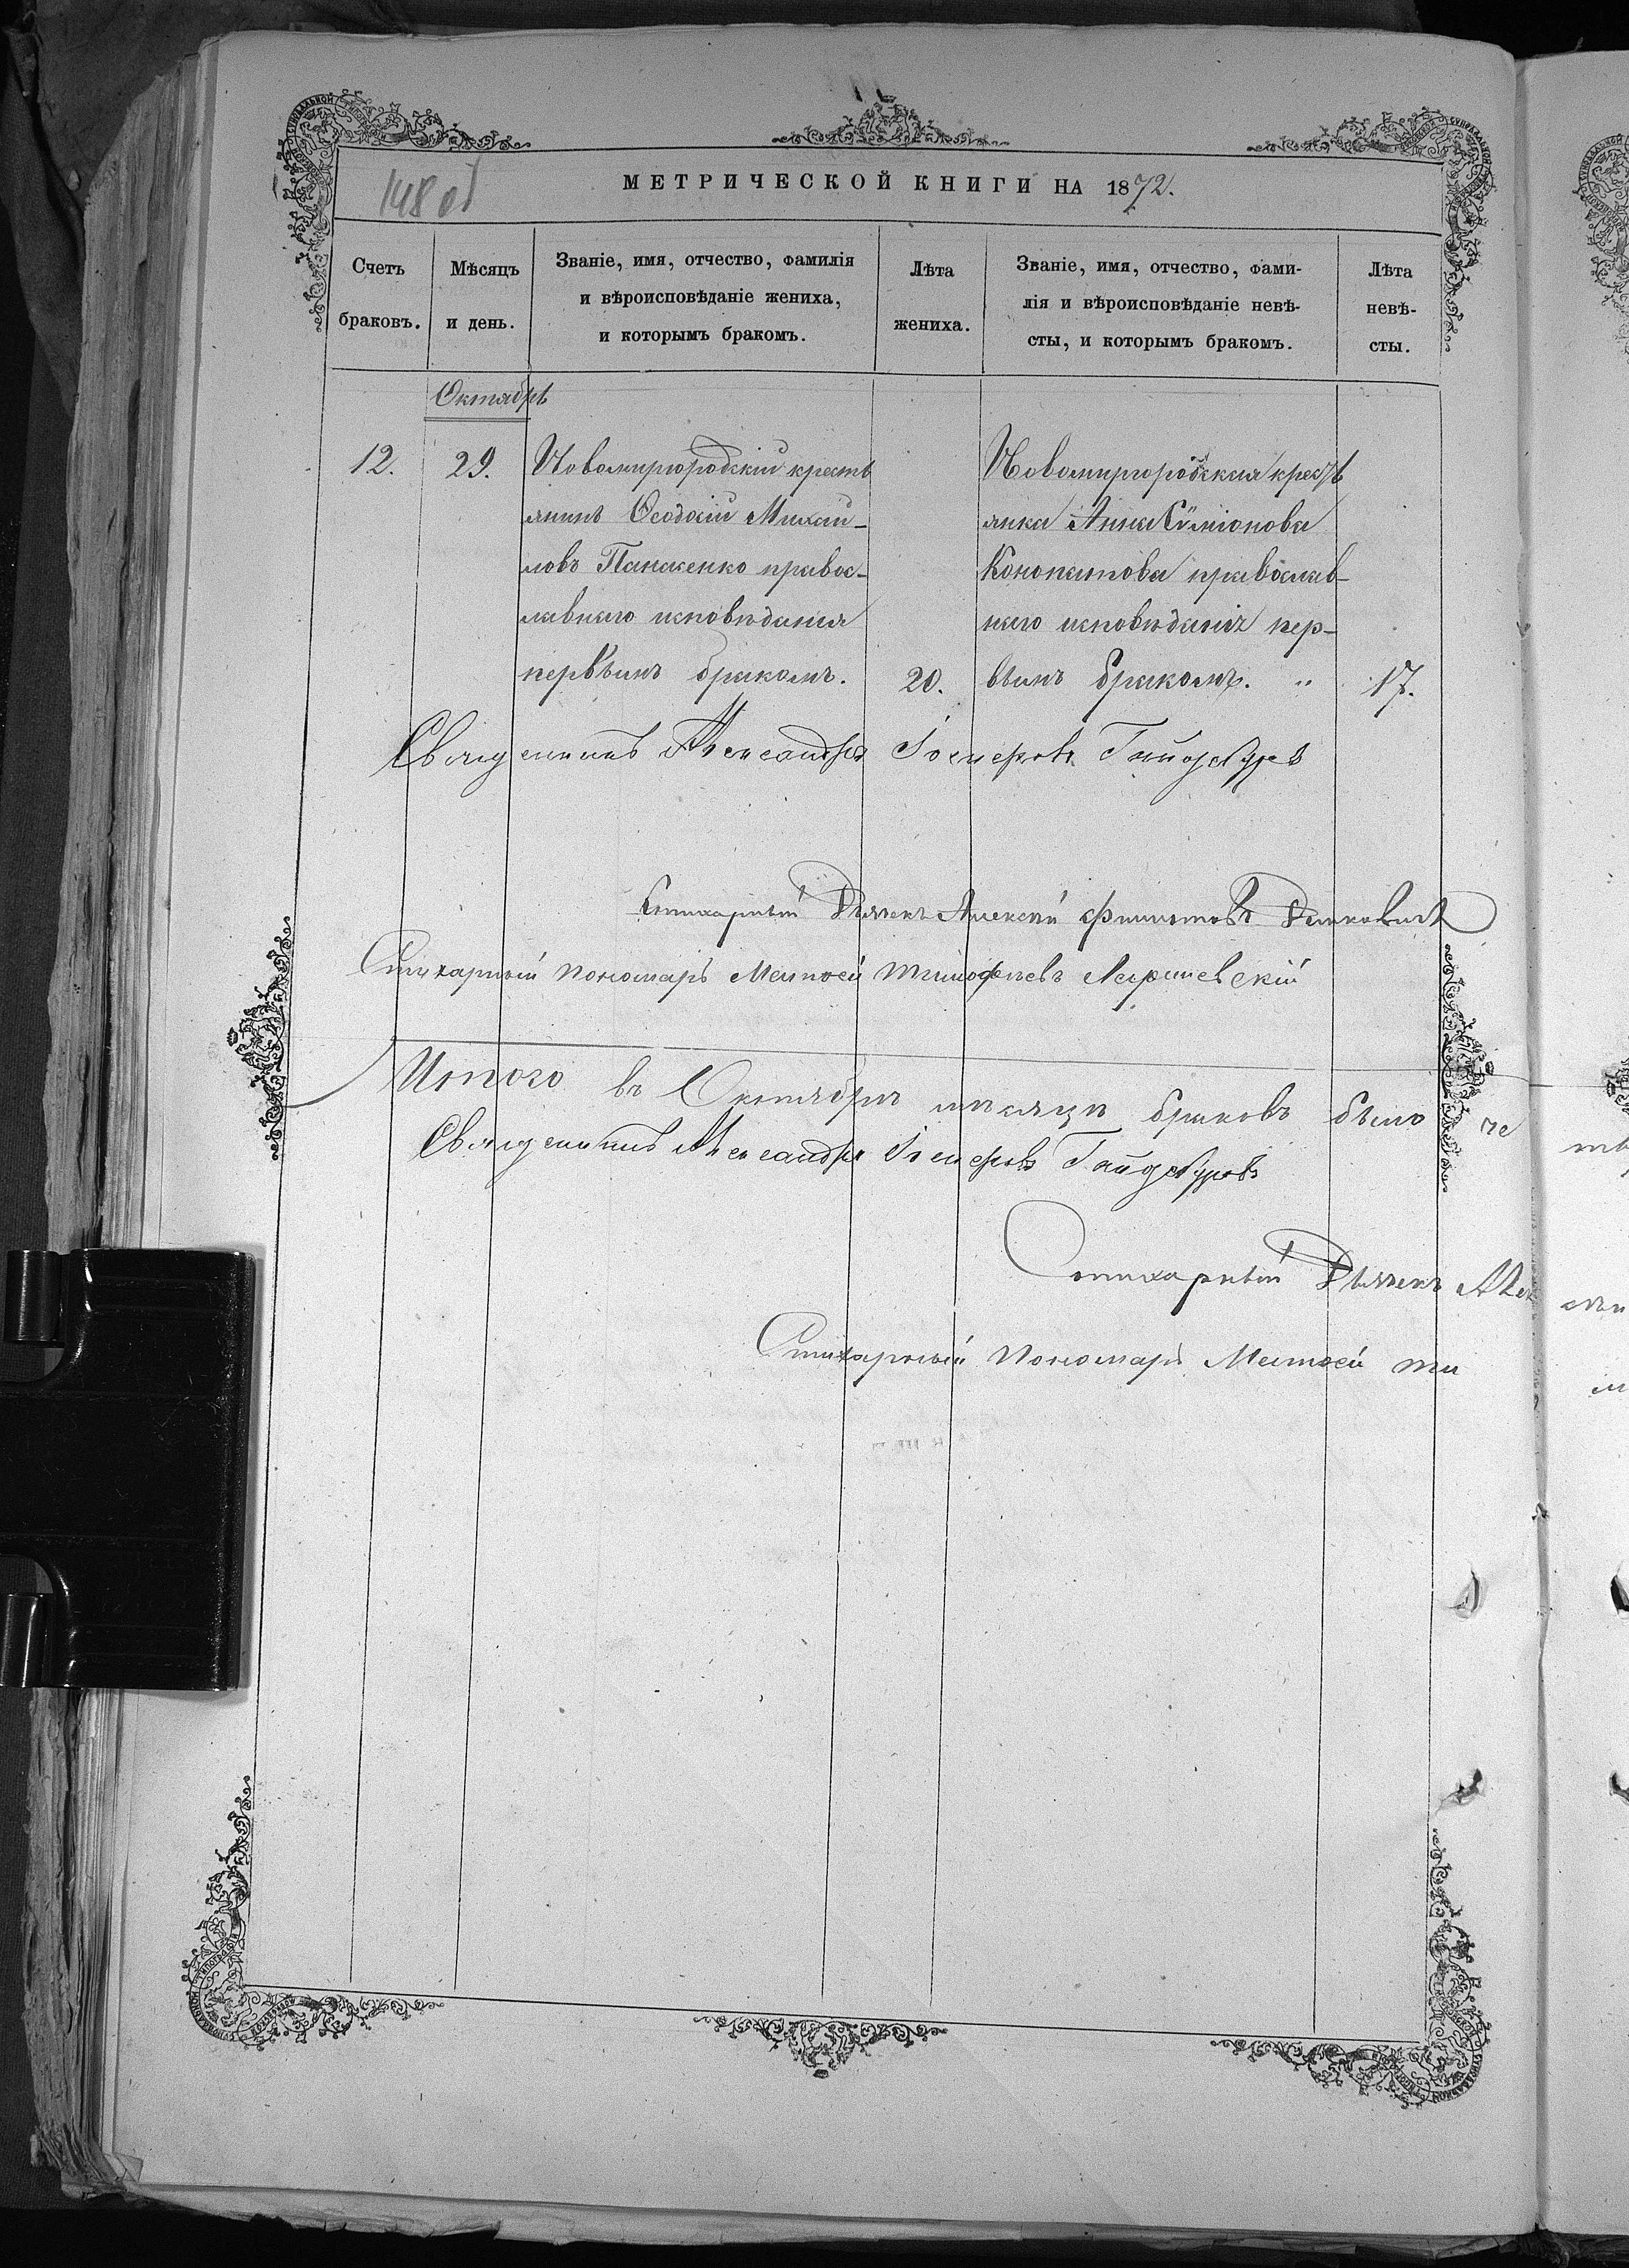 148 об
МЕТРИЧЕСКОЙ КНИГИ НА 1872.
Счетъ браковъ.
Мѣсяцъ и день.
Званіе, имя, отчество, фамилія
и вѣроисповѣданіе жениха,
и которымъ бракомъ.
Лѣта жениха.
Званіе, имя, отчество, фами-
лія и вѣроисповѣданіе невѣ-
сты, и которымъ бракомъ.
Лѣта невѣ-
сты.
Октябрь
12.
29.
Новомиргородскій кресть
янинъ Ѳеодосій Михай-
ловъ Панасенко правос-
лавнаго исповѣданія
первымъ бракомъ.
20.
Новомиргородская кресть
янка Анна Сѵміонова
Конопатова православ-
наго исповѣданія пер-
вымъ бракомъ. "
17.
Священникъ Александръ Іосифовъ Гайдебуровъ
Стихарный Дьячекъ Алексій Филиповъ
Стихарный пономарь Матѳей Тимоѳеевъ
Итого въ Октябрѣ мѣсяцѣ браковъ было че
Священникъ Александръ Іосифовъ Гайдебуровъ
Стихарный Дьячекъ Алек
Стихарный пономарь Матѳей Ти